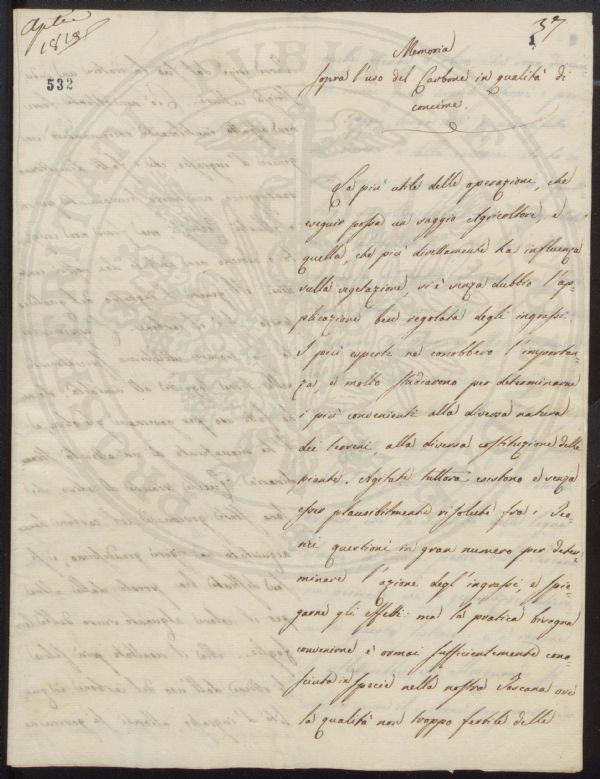 Aprile
1818
37
1
532
Memoria
sopra l'uso del Carbone in qualità di
concime.
La più utile delle operazione, che
eseguir possa un saggio Agricoltore, e
quella, che più direttamente ha influenza
sulla vegetazione, si è senza dubbio l'ap=
plicazione ben regolata degli ingrassi.
I più esperti ne conobbero l'importan=
za, e molto studiarono per determinarne
i più convenienti alla diversa natura
dei terreni, alla diversa costituzione delle
piante. Agitate tuttora esistono e senza
esser plausibilmente risolute fra i Teo=
rici questioni in gran numero per deter=
minare l'azione degl'ingrassi, e spie=
garne gli effetti: ma la pratica bisogna
convenirne è ormai sufficientemente cono=
sciuta in specie nella nostra Toscana ove
la qualità non troppo fertile delle